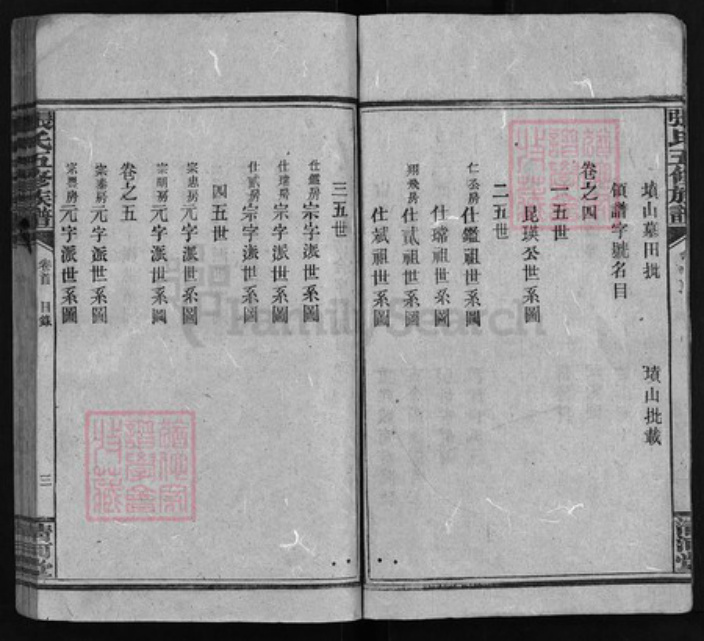 墳山墓田批　墳山批載
領譜字號名目
卷之四
一五世
昆瑛公世系圖
二五世
仕鑑祖世系圖
仕瑞祖世系圖
翔飛房　仕貳祖世系圖
仕斌祖世系圖
三五世
仕鑑房　宗字派世系圖
仕瑞房　宗字派世系圖
仕貳房　宗字派世系圖
四五世
宗忠房　元字派世系圖
宗朝房　元字派世系圖
卷之五
宗泰房　元字派世系圖
元字派世系圖
張氏五修族譜
卷首　目錄
三
清河堂
張氏五修族譜
清河堂
FamilySearch